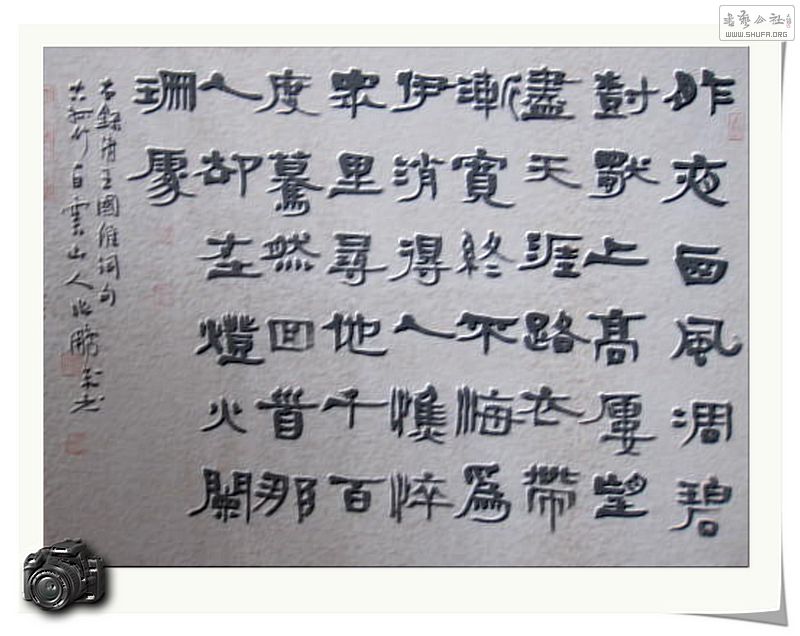 昨夜西風凋碧
對上高屢望
盡天涯路衣帶
漸寬終不悔為
伊消得人憔悴
眾里尋他千百
度驀然回首那
人卻在燈火闌
珊處
右錄清王國維詞句
白雲山人
書藝公社
WWW.SHUFA.ORG